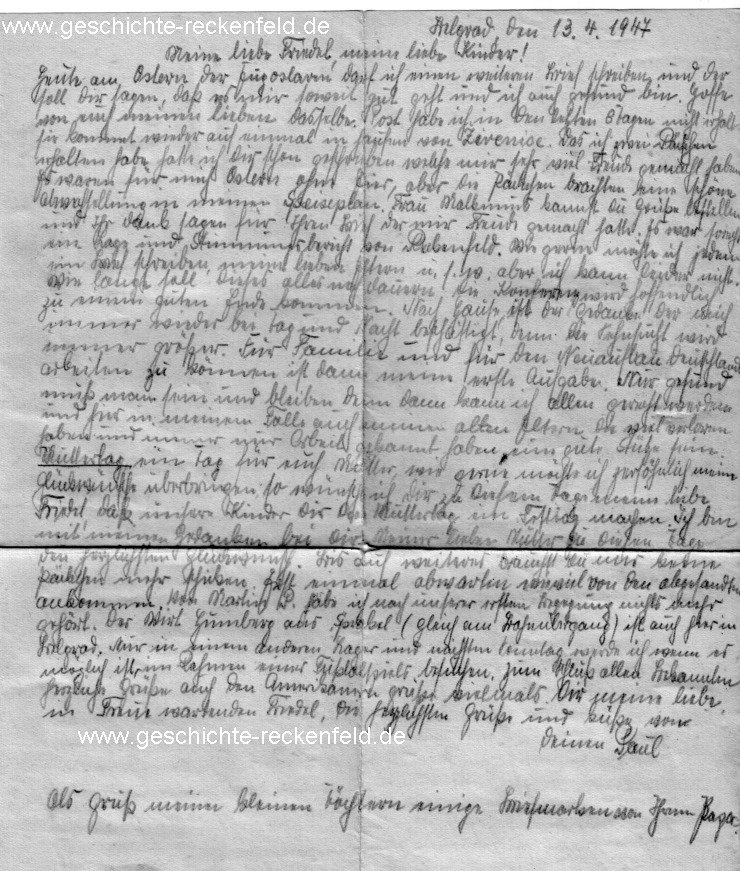 www.geschichte-reckenfeld.de
Belgrad, den 13.4.1947
Meine liebe Friedel, meine liebe Kinder!
Heute am Ostern der Jugoslaven darf ich einen weiteren Brief schreiben und der
soll dir sagen, daß es mir soweit gut geht und ich auch gesund bin. Hoffe
von euch meinen lieben dasselbe. Post habe ich in den letzten 8 Tagen nicht erhalt.
sie kommt wieder auch einmal in Das ich zwei Päckchen
erhalten habe hatte ich dir schon geschrieben welche mir sehr viel Freude gemacht haben
Es waren für mich Ostern ohne Eier, aber die Päckchen brachten eine schöne
Abwechslung in meinen Speiseplan. Frau kannst du Grüße bestellen
und Ihr dank sagen für Ihren Brief der mir Freude gemacht hatte. Es war sowohl
ein und Stimmungsbericht von Wie gerne möchte ich jedem
ein Brief schreiben, meine lieben Eltern u.s.w. aber ich kann leider nicht.
Wie lange soll dieses alles noch dauern die Konferenz wird hoffendlich
zu einem guten Ende kommen. Nach Hause ist der Gedanke der mich
immer wieder bei Tag und Nacht beschäftigt, denn die Sehnsucht wird
immer größer. Für Familie und für den Neuaufbau Deutschlands
arbeiten zu können ist dann meine erste Aufgabe. Nur gesund
muß man sein und bleiben denn dann kann ich allen gerecht werden
und hier in meinem Falle auch meinen alten Eltern die viel verloren
haben und immer nur Arbeit gekannt haben eine gute Stütze sein.
Muttertag ein Tag für euch Mütter, wie gerne möchte ich persöhnlich meine
Glückwünsche überbringen so wünsche ich dir zu diesem Tage meine liebe
Friedel, daß unsere Kinder dir den Muttertag zum Festtag machen. Ich bin
mit meinen Gedanken bei dir. Meiner lieben Mutter zu diesem Tage
den herzlichsten Glückwunsch. Bis auf weiteres brauchst du mir keine
Päckchen mehr schicken. Erst einmal abwarten wieviel von den abgesandten
ankommen. Von Martin habe ich nach unserer ersten Begegnung nichts mehr
gehört. Der Wirt aus (gleich am Bahnübergang) ist auch hier in
Belgrad. Nur in einem anderen Lager und nächsten Sonntag werde ich wenn es
möglich ist, im Rahmen eines besuchen. Zum Schluß allen Bekannten
herzliche Grüße auch den Amerikanern grüße vielmals. Dir meine liebe,
in Treue wartenden Friedel, die herzlichsten Grüße und Küsse von
deinen Paul
www.geschichte-reckenfeld.de
Als Gruß meinen kleinen Töchtern einige Briefmarken von Ihrem Papa.